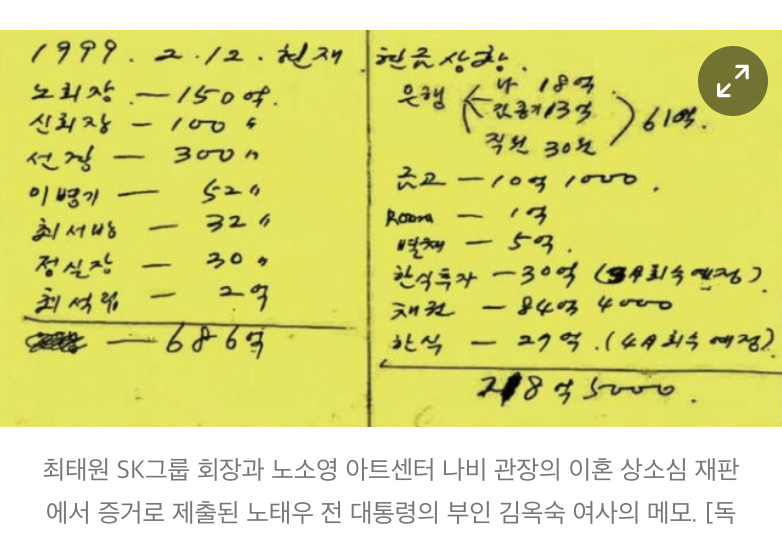 1999. 2. 12. 현재
노회장 — 150억.
신회장 — 100 〃
선경 — 300 〃
이병기 — 52 〃
최서방 — 32 〃
정실장 — 30 〃
최석립 — 2억
— 686억
현금상황.
은행 나 18억. 13억 직원 30억 61억.
금고 — 10억 1000.
Room — 1억
별채 — 5억.
한식투자 — 30억 (회수예정)
채권 — 84억 4000
한식 — 27억. (4月 회수예정)
8억 5000.
최태원 SK그룹 회장과 노소영 아트센터 나비 관장의 이혼 상소심 재판
에서 증거로 제출된 노태우 전 대통령의 부인 김옥숙 여사의 메모. [독